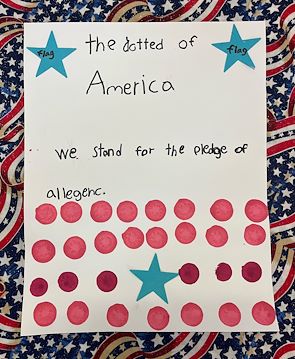 flag
flag
the dotted of
America
we stand for the pledge of
allegenc.